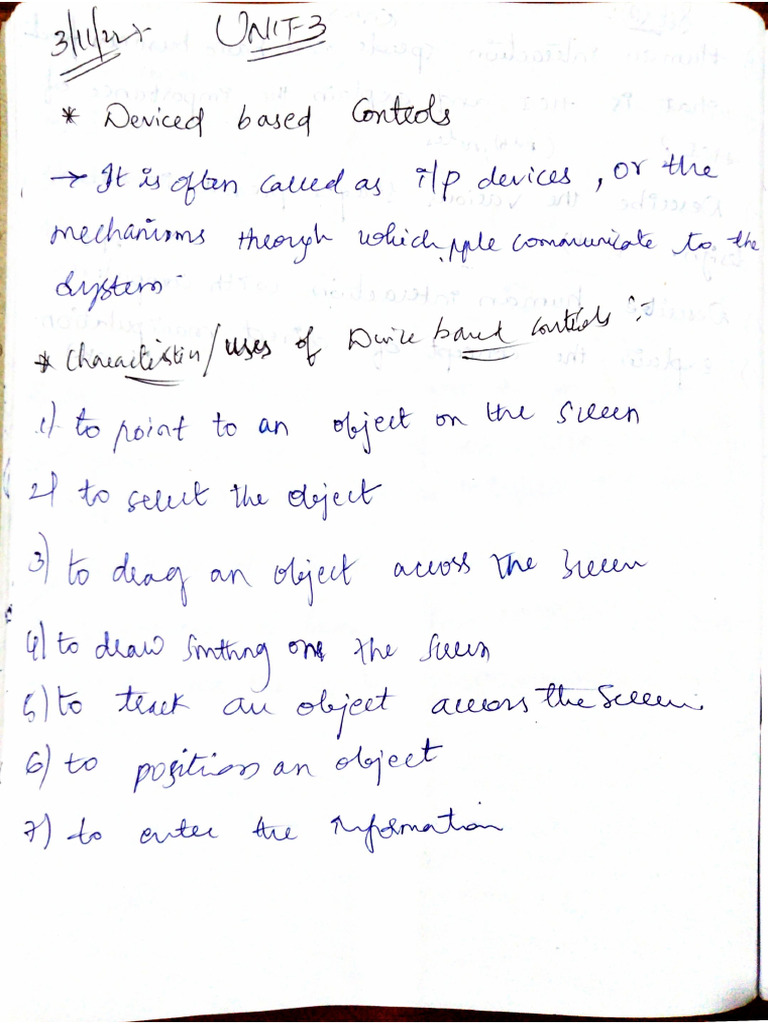 3/11/22
UNIT-3
* Deviced based Controls
→ It is often called as i/p devices, or the
mechanisms through which pple communicate to the
system
* Characteristics/uses of Device based controls :-
1) to point to an object on the screen
2) to select the object
3) to drag an object across the screen
4) to draw smthng on the screen
5) to track an object across the screen.
6) to position an object
7) to enter the information